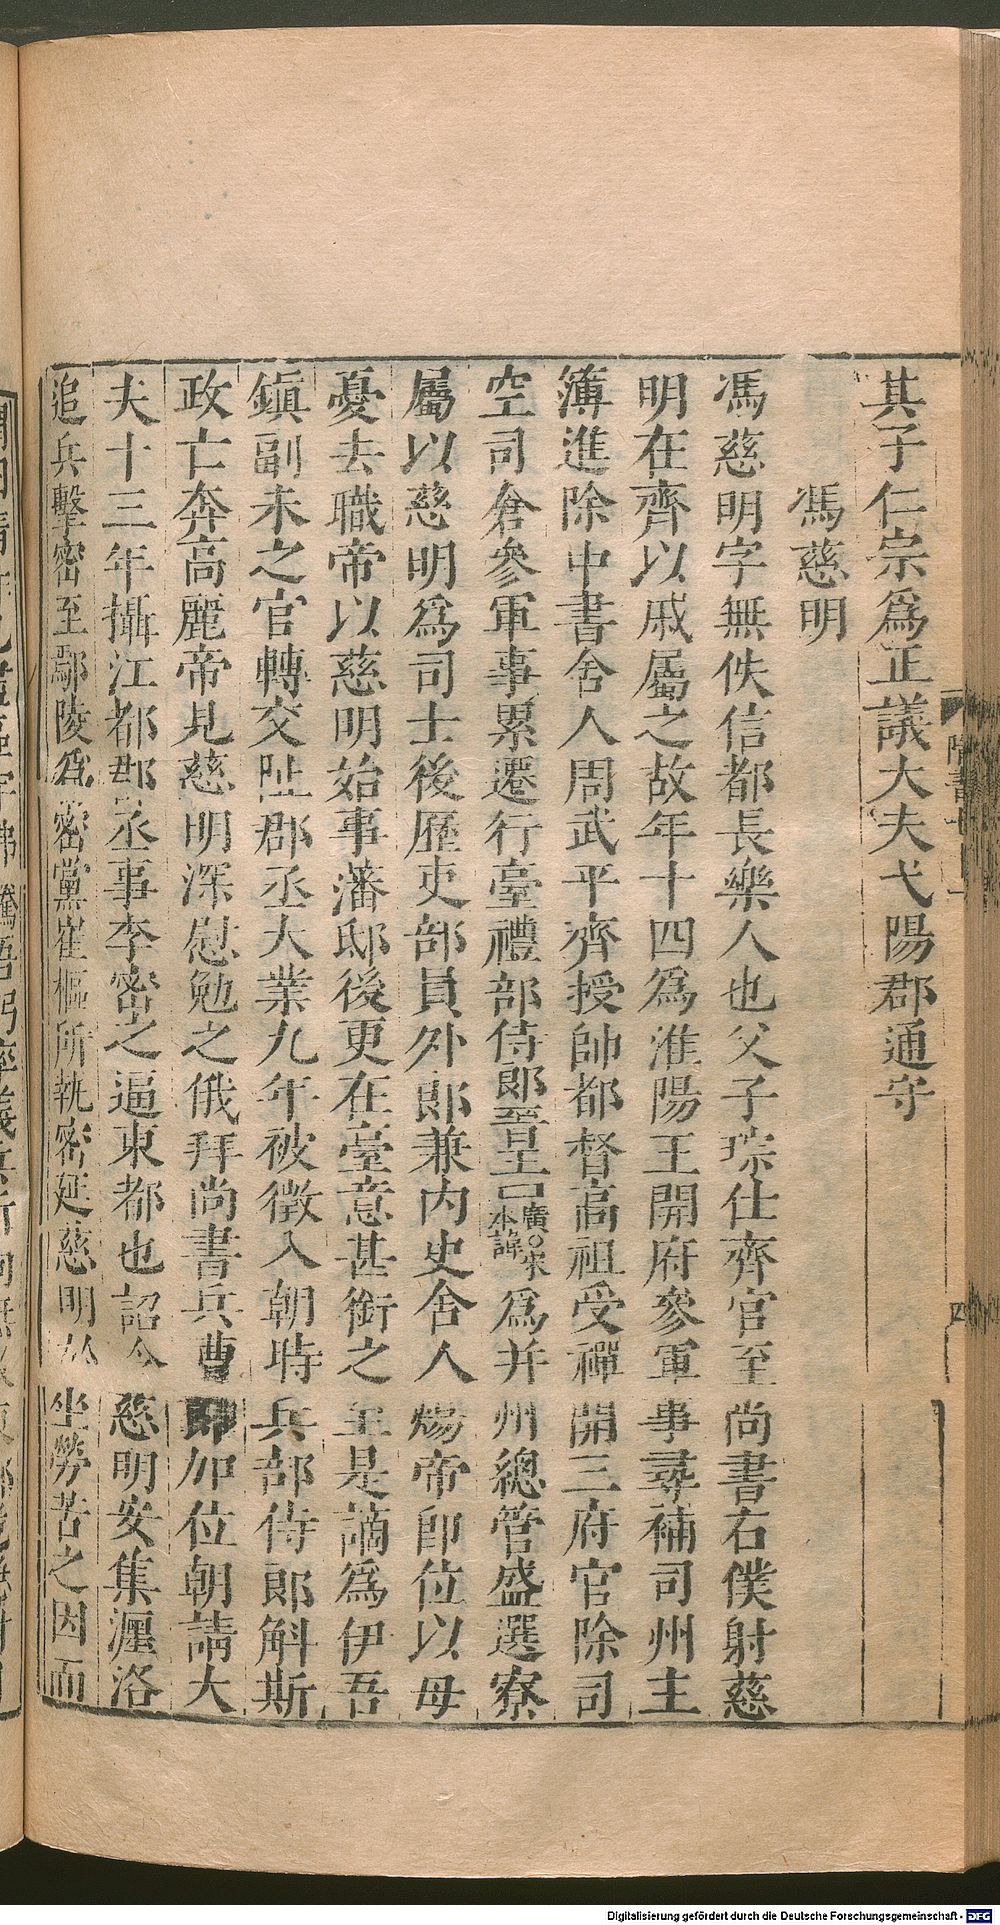 其子仁宗爲正議大夫弋陽郡通守
馮慈明
馮慈明字無佚信都長樂人也父子琮仕齊官至尚書右僕射慈
明在齊以戚屬之故年十四爲淮陽王開府參軍事尋補司州主
簿進除中書舍人周武平齊授帥都督高祖受禪開三府官除司
空司倉參軍事累遷行臺禮部侍郎晉王廣○宋本諱爲并州總管盛選寮
屬以慈明爲司士後歷吏部員外郎兼內史舍人煬帝即位以母
憂去職帝以慈明始事藩邸後更在臺意甚銜之至是謫爲伊吾
鎮副未之官轉交阯郡丞大業九年被徵入朝時兵部侍郎斛斯
政亡奔高麗帝見慈明深慰勉之俄拜尚書兵曹郎加位朝請大
夫十三年攝江都郡丞事李密之逼東都也詔令慈明安集瀍洛
追兵擊密至鄢陵爲密黨崔樞所執密延慈明於坐勞苦之因而
隋書七十一
四
Digitalisierung gefördert durch die Deutsche Forschungsgemeinschaft - DFG